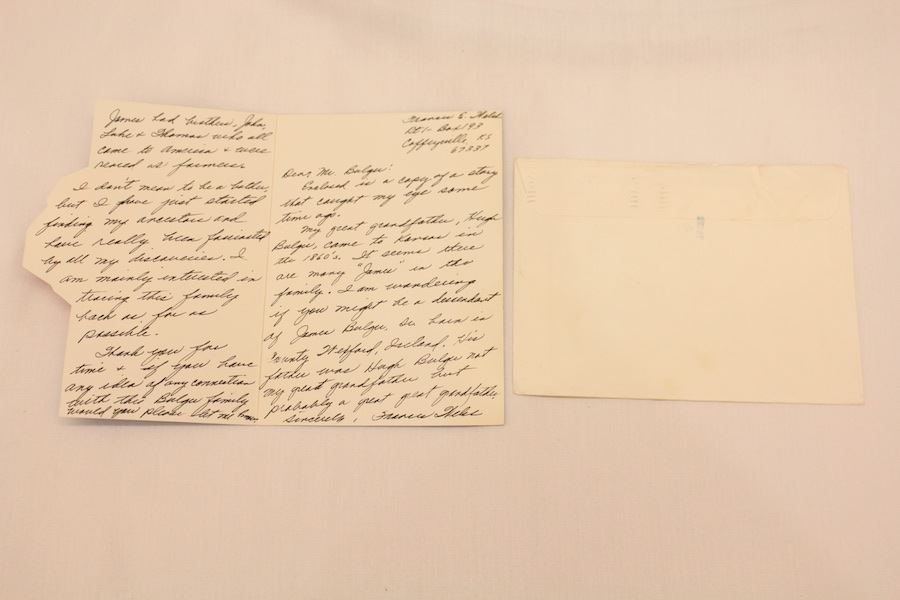 Frances E. Thales
Rt 1 - Box 193
Coffeyville, KS
67337
Dear Mr. Bulger:
Enclosed is a copy of a story
that caught my eye some
time ago.
My great grandfather, Hugh
Bulger, came to Kansas in
the 1860's. It seems there
are many "James" in the
family. I am wondering
if you might be a descendant
of James Bulger, Sr. born in
County Wexford, Ireland. His
father was Hugh Bulger not
my great grandfather but
probably a great great grandfather.
Sincerely, Frances Thales
James had brothers, John,
Luke & Thomas who all
came to America & were
reared as farmers.
I don't mean to be a bother,
but I have just started
finding my ancestors and
have really been fascinated
by all my discoveries. I
am mainly interested in
tracing this family
back as far as
possible.
Thank you for
time & if you have
any idea of any connection
with this Bulger family
would you please let me know.